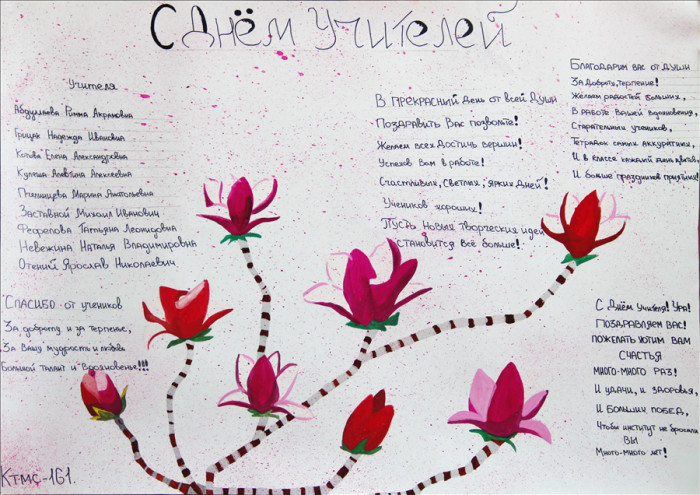 С Днём Учителей
Учителя
Абдуллаева Римма Акрамовна
Грицак Надежда Ивановна
Котова Елена Александровна
Кулеша Алевтина Алексеевна
Пшеницева Марина Анатольевна
Заставной Михаил Иванович
Федорова Татьяна Леонидовна
Невежина Наталья Владимировна
Отений Ярослав Николаевич
Спасибо от учеников
За доброту и за терпенье,
За вашу мудрость и любовь
Большой талант и вдохновенье!!!
Ктмс-161.
В прекрасный день от всей Души
Поздравить Вас позвольте!
Желаем всех достичь вершин!
Успехов Вам в работе!
Счастливых, Светлых, ярких Дней!
Учеников хороших!
Пусть Новых Творческих идей
становится всё больше!
Благодарим вас от души
За Доброту, терпение!
Желаем радостей больших,
В работе вашей вдохновения,
Старательных учеников,
Тетрадок самых аккуратных,
И в классе каждый день цветов
И больше праздников приятных!
С Днём Учителя! Ура!
Поздравляем Вас!
пожелать хотим вам
счастья
много-много раз!
И удачи, и здоровья,
И больших побед,
Чтобы институт не бросали
вы
Много-много лет!